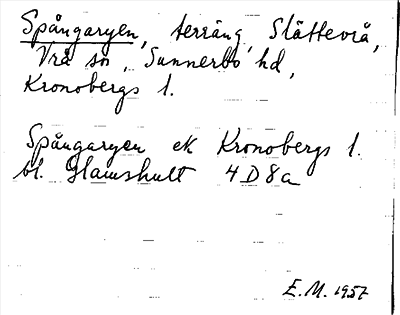 Spångaryen, terräng, Slätteviå,
Vrå sn, Sunnerbo hd,
Kronobergs l.
Spångaryen ek Kronobergs l.
bl. Glamshult 4D8a
E.M. 1957